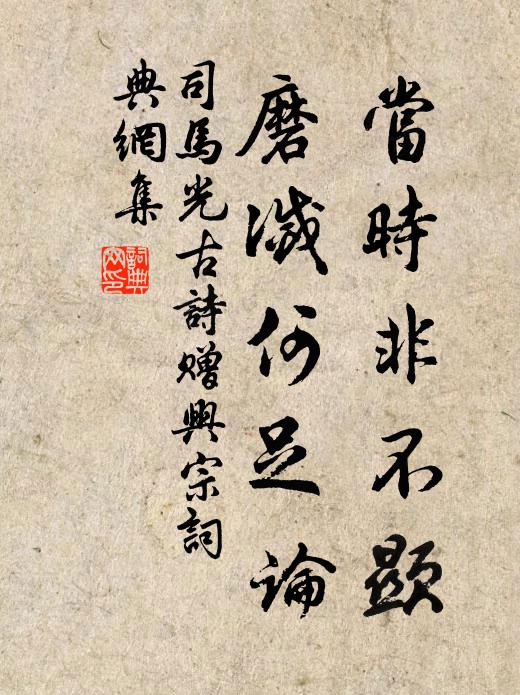 當時非不顯
磨滅何足論
司馬光古詩贈興宗詞
典網集
詞典